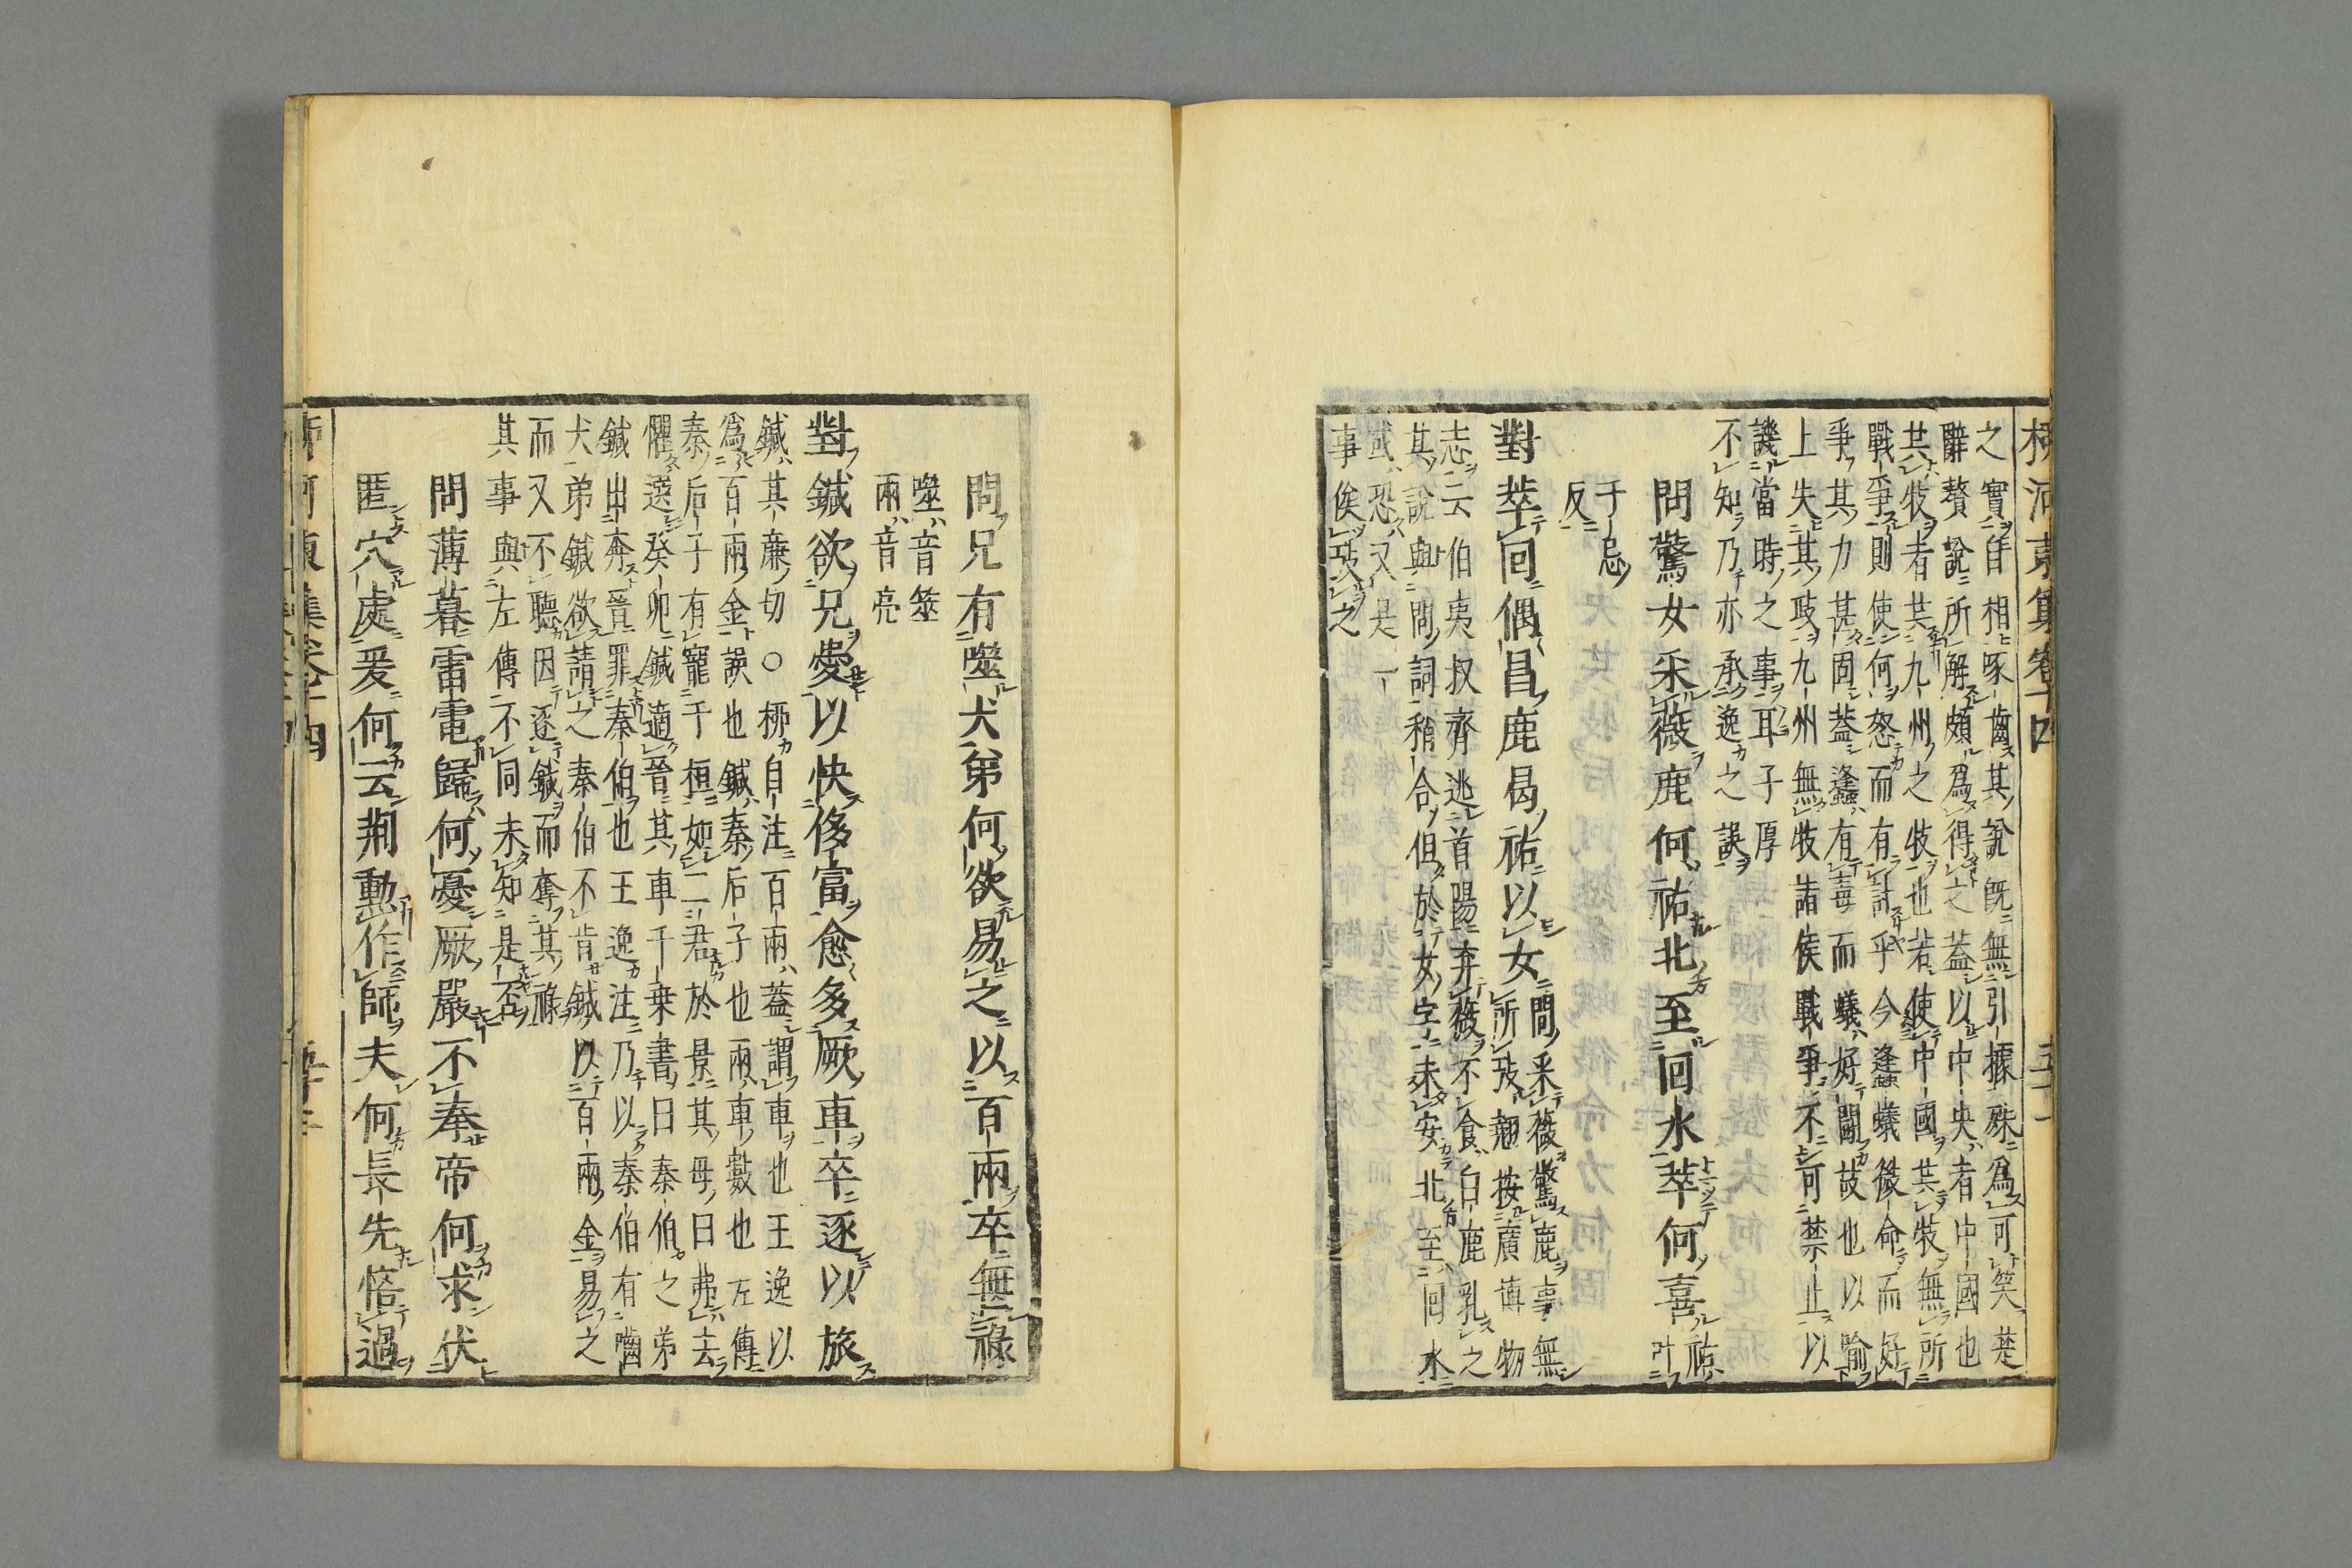 柳河東集卷十四
之實自相啄齒其說旣無引據殊爲可笑楚
辭贅說所解頗爲得之蓋以中央者中國也
共牧者共九州之牧也若使中國共牧無所
戰爭則使何怒而有計乎今蠭蟻微命而好
爭其力甚固蓋蠭有毒而蟻好鬭故也以喻
上失其政九州無牧諸侯戰爭不可禁止以
譏當時之事耳子厚
不知乃亦承逸之誤
問驚女采薇鹿何祐北至回水萃何喜祐叶
于忌
反
對萃回偶昌鹿曷祐以女問采薇驚鹿事無
所攷翹按廣博物
志云伯夷叔齊逃首陽弃薇不食白鹿乳之
其說與問詞稍合但於女字未安北至回水
或恐又是一
事俟攷之
問兄有噬犬弟何欲易之以百兩卒無祿
噬音筮
兩音亮
對鍼欲兄愛以快侈富愈多厥車卒逐以旅
鍼其廉切○柳自注百兩蓋謂車也王逸以
爲百兩金誤也鍼秦后子也兩車數也左傳
秦后子有寵千桓如二君於景其母曰弗去
懼選癸卯鍼適晉其車千乗書曰秦伯之弟
鍼出奔晉罪秦伯也王逸注乃以秦伯有嚙
犬弟鍼欲請之秦伯不肯鍼以百兩金易之
而又不聽因逐鍼而奪其祿
其事與左傳不同未知是否
問薄暮雷電歸何憂厥嚴不奉帝何求伏
匿穴處爰何云荆勳作師夫何長先悟過